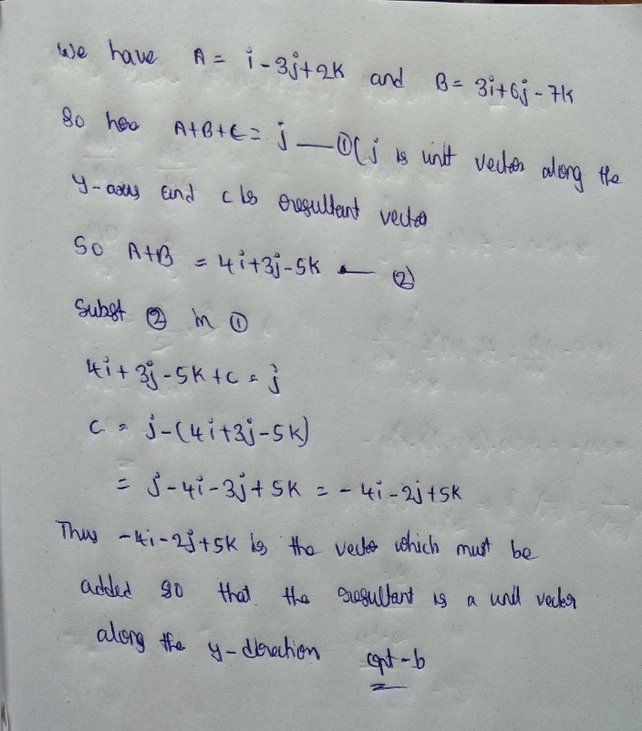 We have A = i - 3j + 2k and B = 3i + 6j - 7k
So A + B + C = j — ① ( j is unit vector along the
y-axis and c is resultant vector
So A+B = 4i+3j-5k — ②
Subst ② in ①
4i + 3j - 5k + c = j
c = j - (4i + 3j - 5k)
= j - 4i - 3j + 5k = - 4i - 2j + 5k
Thus -4i - 2j + 5k is the vector which must be
added so that the resultant is a unit vector
along the y-direction opt - b